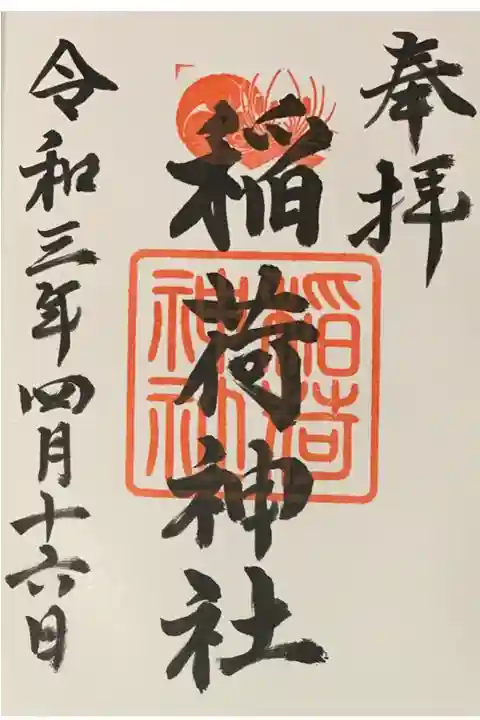 奉拝
稲荷神社
稲荷神社
令和三年四月十六日